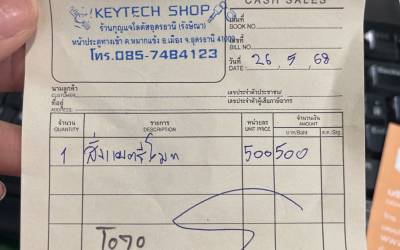 CASH SALES
KEYTECH SHOP
ร้านกุญแจโลตัสอุดรธานี (รังษิณา)
หน้าประตูทางเข้า ต.หมากแข้ง อ.เมือง จ.อุดรธานี 41000
โทร.085-7484123
เล่มที่
BOOK NO.
เลขที่
BILL NO.
วันที่
DATE 26, 9, 68
นามลูกค้า
CUSTOMER
ที่อยู่
ADDRESS
เลขประจำตัวประชาชน/
เลขประจำตัวผู้เสียภาษีอากร
จำนวน
QUANTITY
รายการ
DESCRIPTION
หน่วยละ
UNIT PRICE
จำนวนเงิน
AMOUNT
บาท/Baht
ส.ต./Stg.
1 500 500